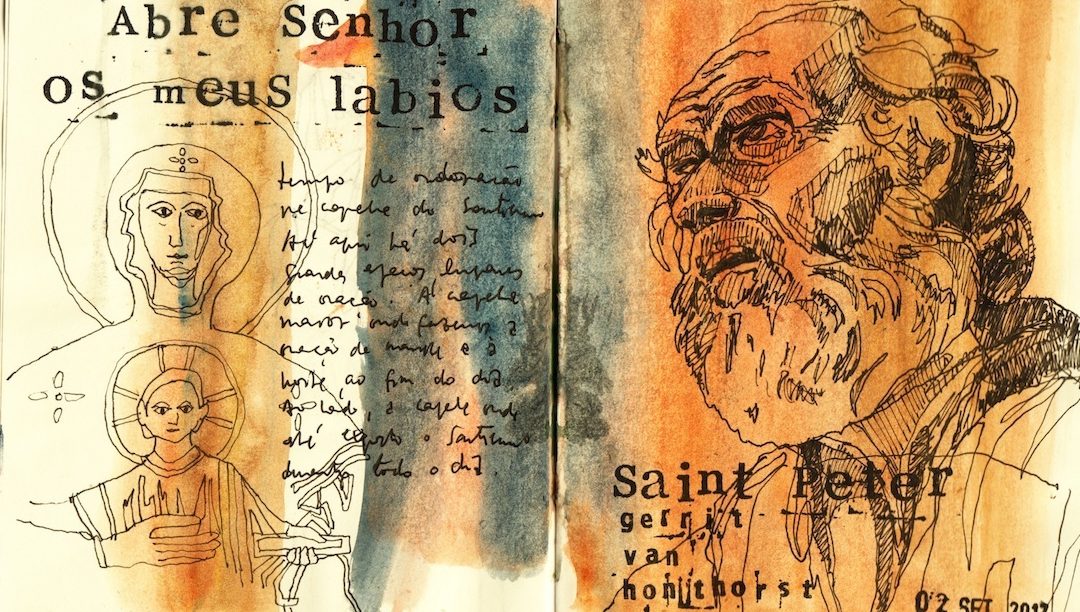 Abre Senhor
os meus labios
tempo de adoração
na capela do Santíssimo
aqui há dois
grandes espaços lugares
de oração. A capela
maior onde fazemos a
oração de manhã e à
noite ao fim do dia.
Ao lado, a capela onde
está exposto o Santíssimo
durante todo o dia.
Saint Peter
gerrit
van
honthorst
SET 2017